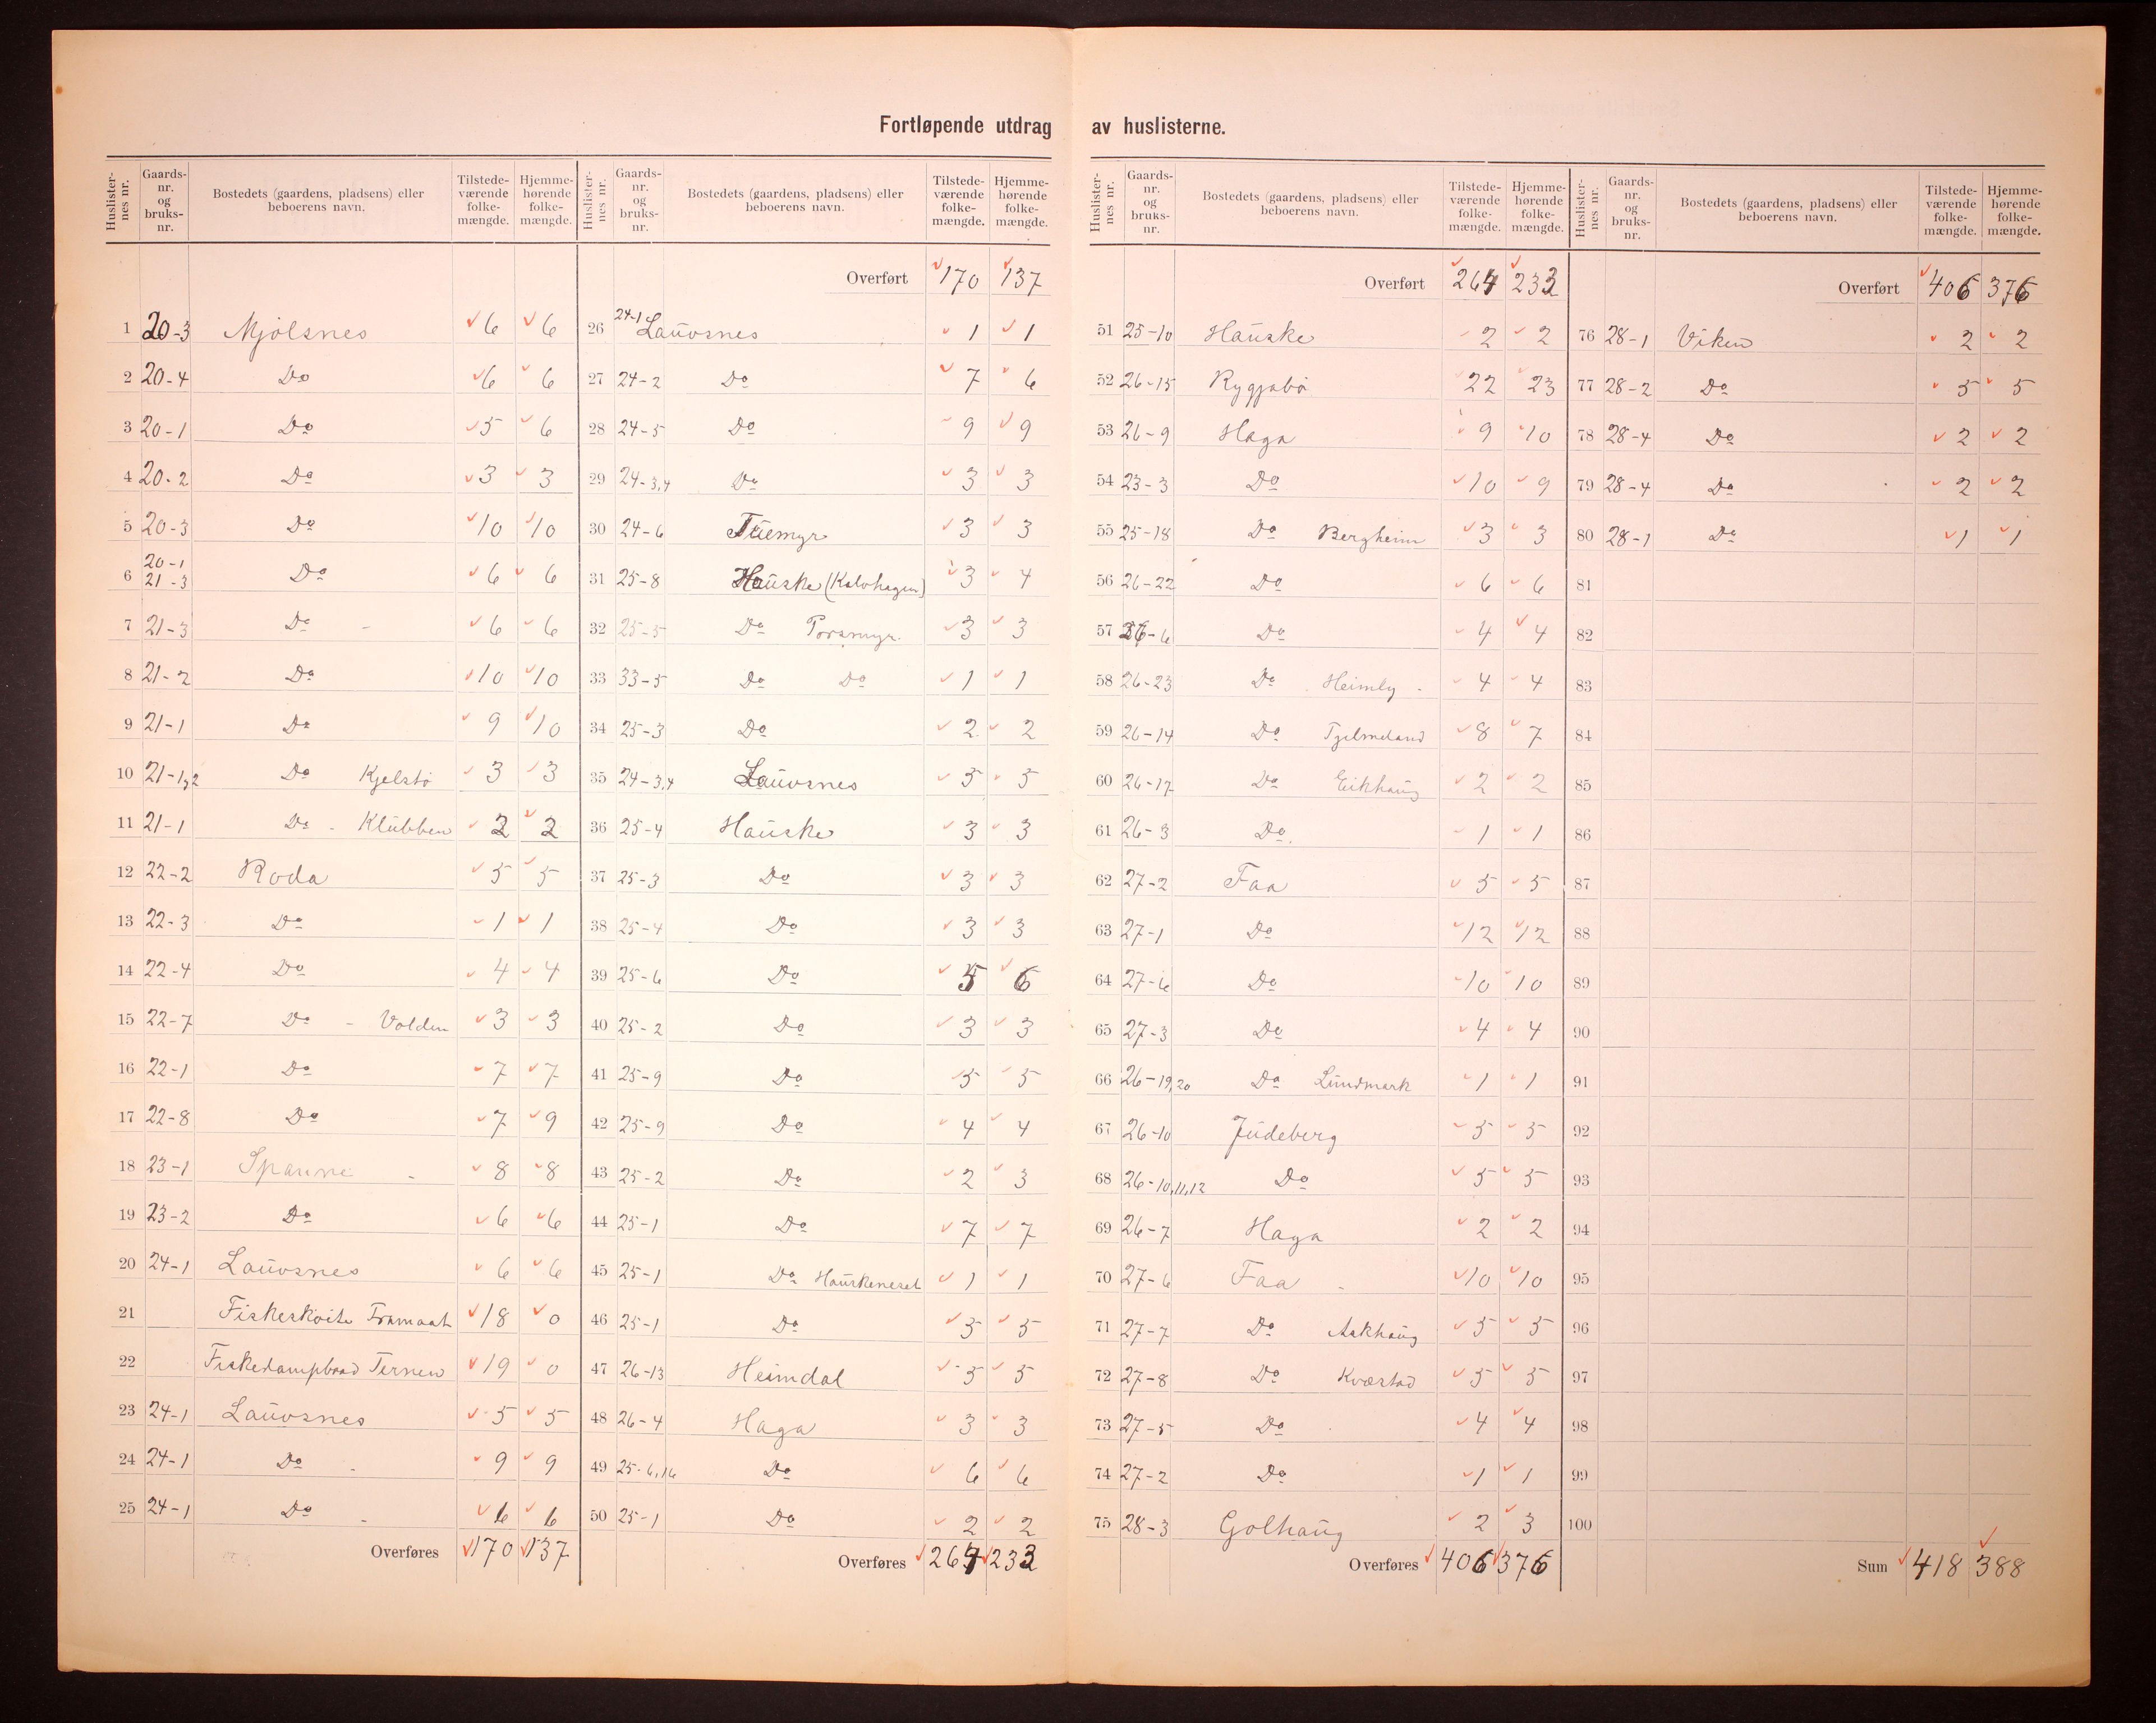 Fortløpende utdrag av huslisterne.
Huslisternes nr. Gaards-nr. og bruks-nr. Bostedets (gaardens, pladsens) eller beboerens navn. Tilstedeværende folkemængde. Hjemmehørende folkemængde.
1 20-3 Mjølsnes 6 6
2 20-4 Do 6 6
3 20-1 Do 5 6
4 20-2 Do 3 3
5 20-3 Do 10 10
6 20-1 21-3 Do 6 6
7 21-3 Do - 6 6
8 21-2 Do 10 10
9 21-1 Do 9 10
10 21-1,2 Do Kjelstø 3 3
11 21-1 Do - Klubben 2 2
12 22-2 Roda 5 5
13 22-3 Do 1 1
14 22-4 Do 4 4
15 22-7 Do - Volden 3 3
16 22-1 Do 7 7
17 22-8 Do 7 9
18 23-1 Spanne - 8 8
19 23-2 Do 6 6
20 24-1 Lauvsnes 6 6
21 Fiskeskøite Framaat 18 0
22 Fiskedampbaad Ternen 19 0
23 24-1 Lauvsnes 5 5
24 24-1 Do - 9 9
25 24-1 Do - 6 6
Overføres 170 137
Huslisternes nr. Gaards-nr. og bruks-nr. Bostedets (gaardens, pladsens) eller beboerens navn. Tilstedeværende folkemængde. Hjemmehørende folkemængde.
Overført 170 137
26 24-1 Lauvsnes 1 1
27 24-2 Do 7 6
28 24-5 Do 9 9
29 24-3,4 Do 3 3
30 24-6 Tuemyr 3 3
31 25-8 Hauske (Kalvhagen) 3 4
32 25-5 Do Porsmyr 3 3
33 33-5 Do Do 1 1
34 25-3 Do 2 2
35 24-3,4 Lauvsnes 5 5
36 25-4 Hauske 3 3
37 25-3 Do 3 3
38 25-4 Do 3 3
39 25-6 Do 5 6
40 25-2 Do 3 3
41 25-9 Do 5 5
42 25-9 Do 4 4
43 25-2 Do 2 3
44 25-1 Do 7 7
45 25-1 Do Hauskeneset 1 1
46 25-1 Do 5 5
47 26-13 Heimdal 5 5
48 26-4 Haga 3 3
49 25-6,16 Do 6 6
50 25-1 Do 2 2
Overføres 264 233
Huslisternes nr. Gaards-nr. og bruks-nr. Bostedets (gaardens, pladsens) eller beboerens navn. Tilstedeværende folkemængde. Hjemmehørende folkemængde.
Overført 264 233
51 25-10 Hauske 2 2
52 26-15 Rygjabø 22 23
53 26-9 Haga 9 10
54 23-3 Do 10 9
55 25-18 Do Bergheim 3 3
56 26-22 Do 6 6
57 26-6 Do 4 4
58 26-23 Do Heimly - 4 4
59 26-14 Do Tjelmeland 8 7
60 26-17 Do Eikhaug 2 2
61 26-3 Do 1 1
62 27-2 Faa 5 5
63 27-1 Do 12 12
64 27-6 Do 10 10
65 27-3 Do 4 4
66 26-19,20 Do Lundmark 1 1
67 26-10 Judeberg 5 5
68 26-10,11,12 Do 5 5
69 26-7 Haga 2 2
70 27-6 Faa - 10 10
71 27-7 Do Askhaug 5 5
72 27-8 Do Kværstad 5 5
73 27-5 Do 4 4
74 27-2 Do 1 1
75 28-3 Golhaug 2 3
Overføres 406 376
Huslisternes nr. Gaards-nr. og bruks-nr. Bostedets (gaardens, pladsens) eller beboerens navn. Tilstedeværende folkemængde. Hjemmehørende folkemængde.
Overført 406 376
76 28-1 Viken 2 2
77 28-2 Do 5 5
78 28-4 Do 2 2
79 28-4 Do 2 2
80 28-1 Do 1 1
81
82
83
84
85
86
87
88
89
90
91
92
93
94
95
96
97
98
99
100
Sum 418 388